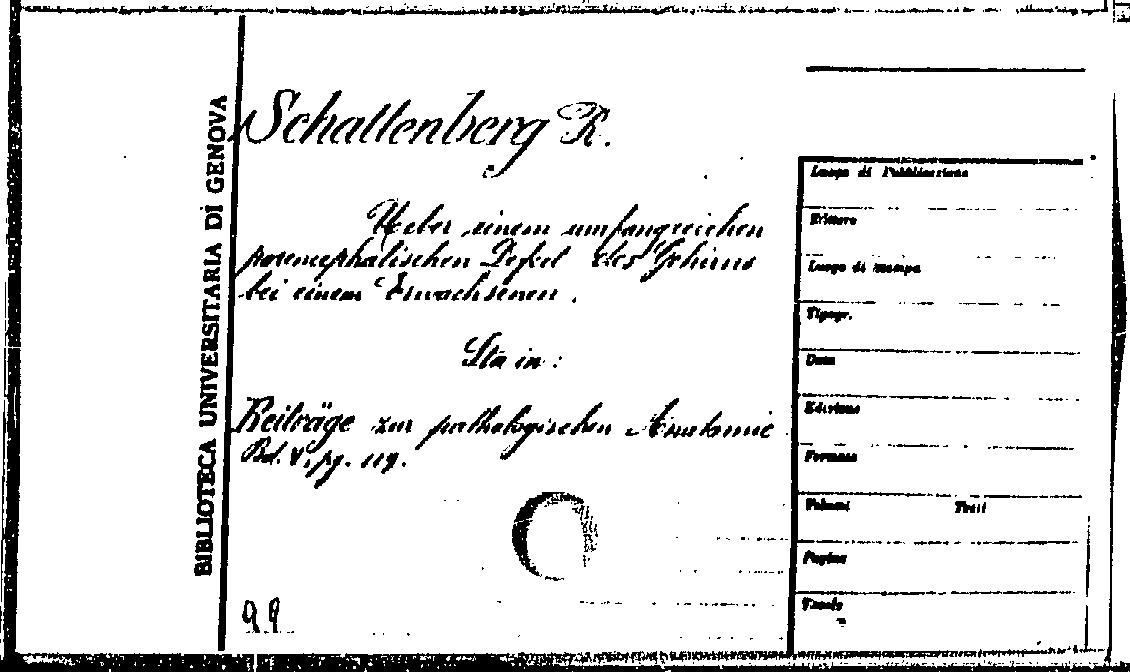 BIBLIOTECA UNIVERSITARIA DI GENOVA
Schattenberg R.
Ueber einem umfangreichen
porencephalischen Defect des Gehirns
bei einem Erwachsenen.
Sta in:
Beiträge zur pathologischen Anatomie
Bd. V, pg. 119.
99
Luogo di Pubblicazione
Editore
Luogo di stampa
Tipogr.
Data
Edizione
Formato
Volumi Tomi
Pagine
Tavole